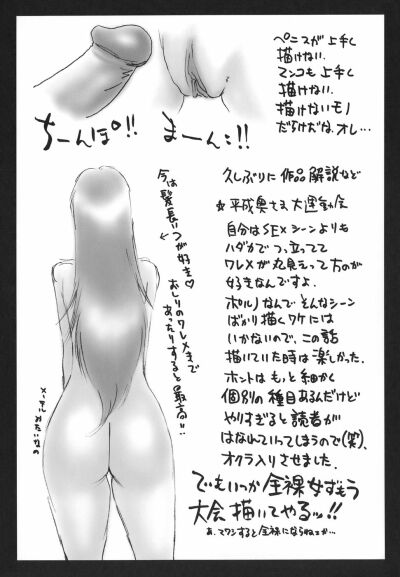 ペニスが上手く
描けない.
マンコも上手く
描けない.
描けないモノ
だらけだな、オレ…
ちーんぽ!!
まーんこ!!
久しぶりに作品解説など
☆平成奥さま大運動会
自分はSEXシーンよりも
ハダカでつっ立ってて
ワレメが丸見えって方のが
好きなんですよ.
ポルノなんでそんなシーン
ばかり描くワケには
いかないので、この話
描いていた時は楽しかった.
ホントはもっと細かく
個別の種目あるんだけど
やりすぎると読者が
はなれていってしまうので(笑).
オクラ入りさせました.
でもいつか全裸女ずもう
大会描いてやるッ!!
あ、マワシすると全裸にならねェか…
今は髪長いコが好き♡
←おしりのワレメまで
あったりすると最高!!
メーテルみたいなの